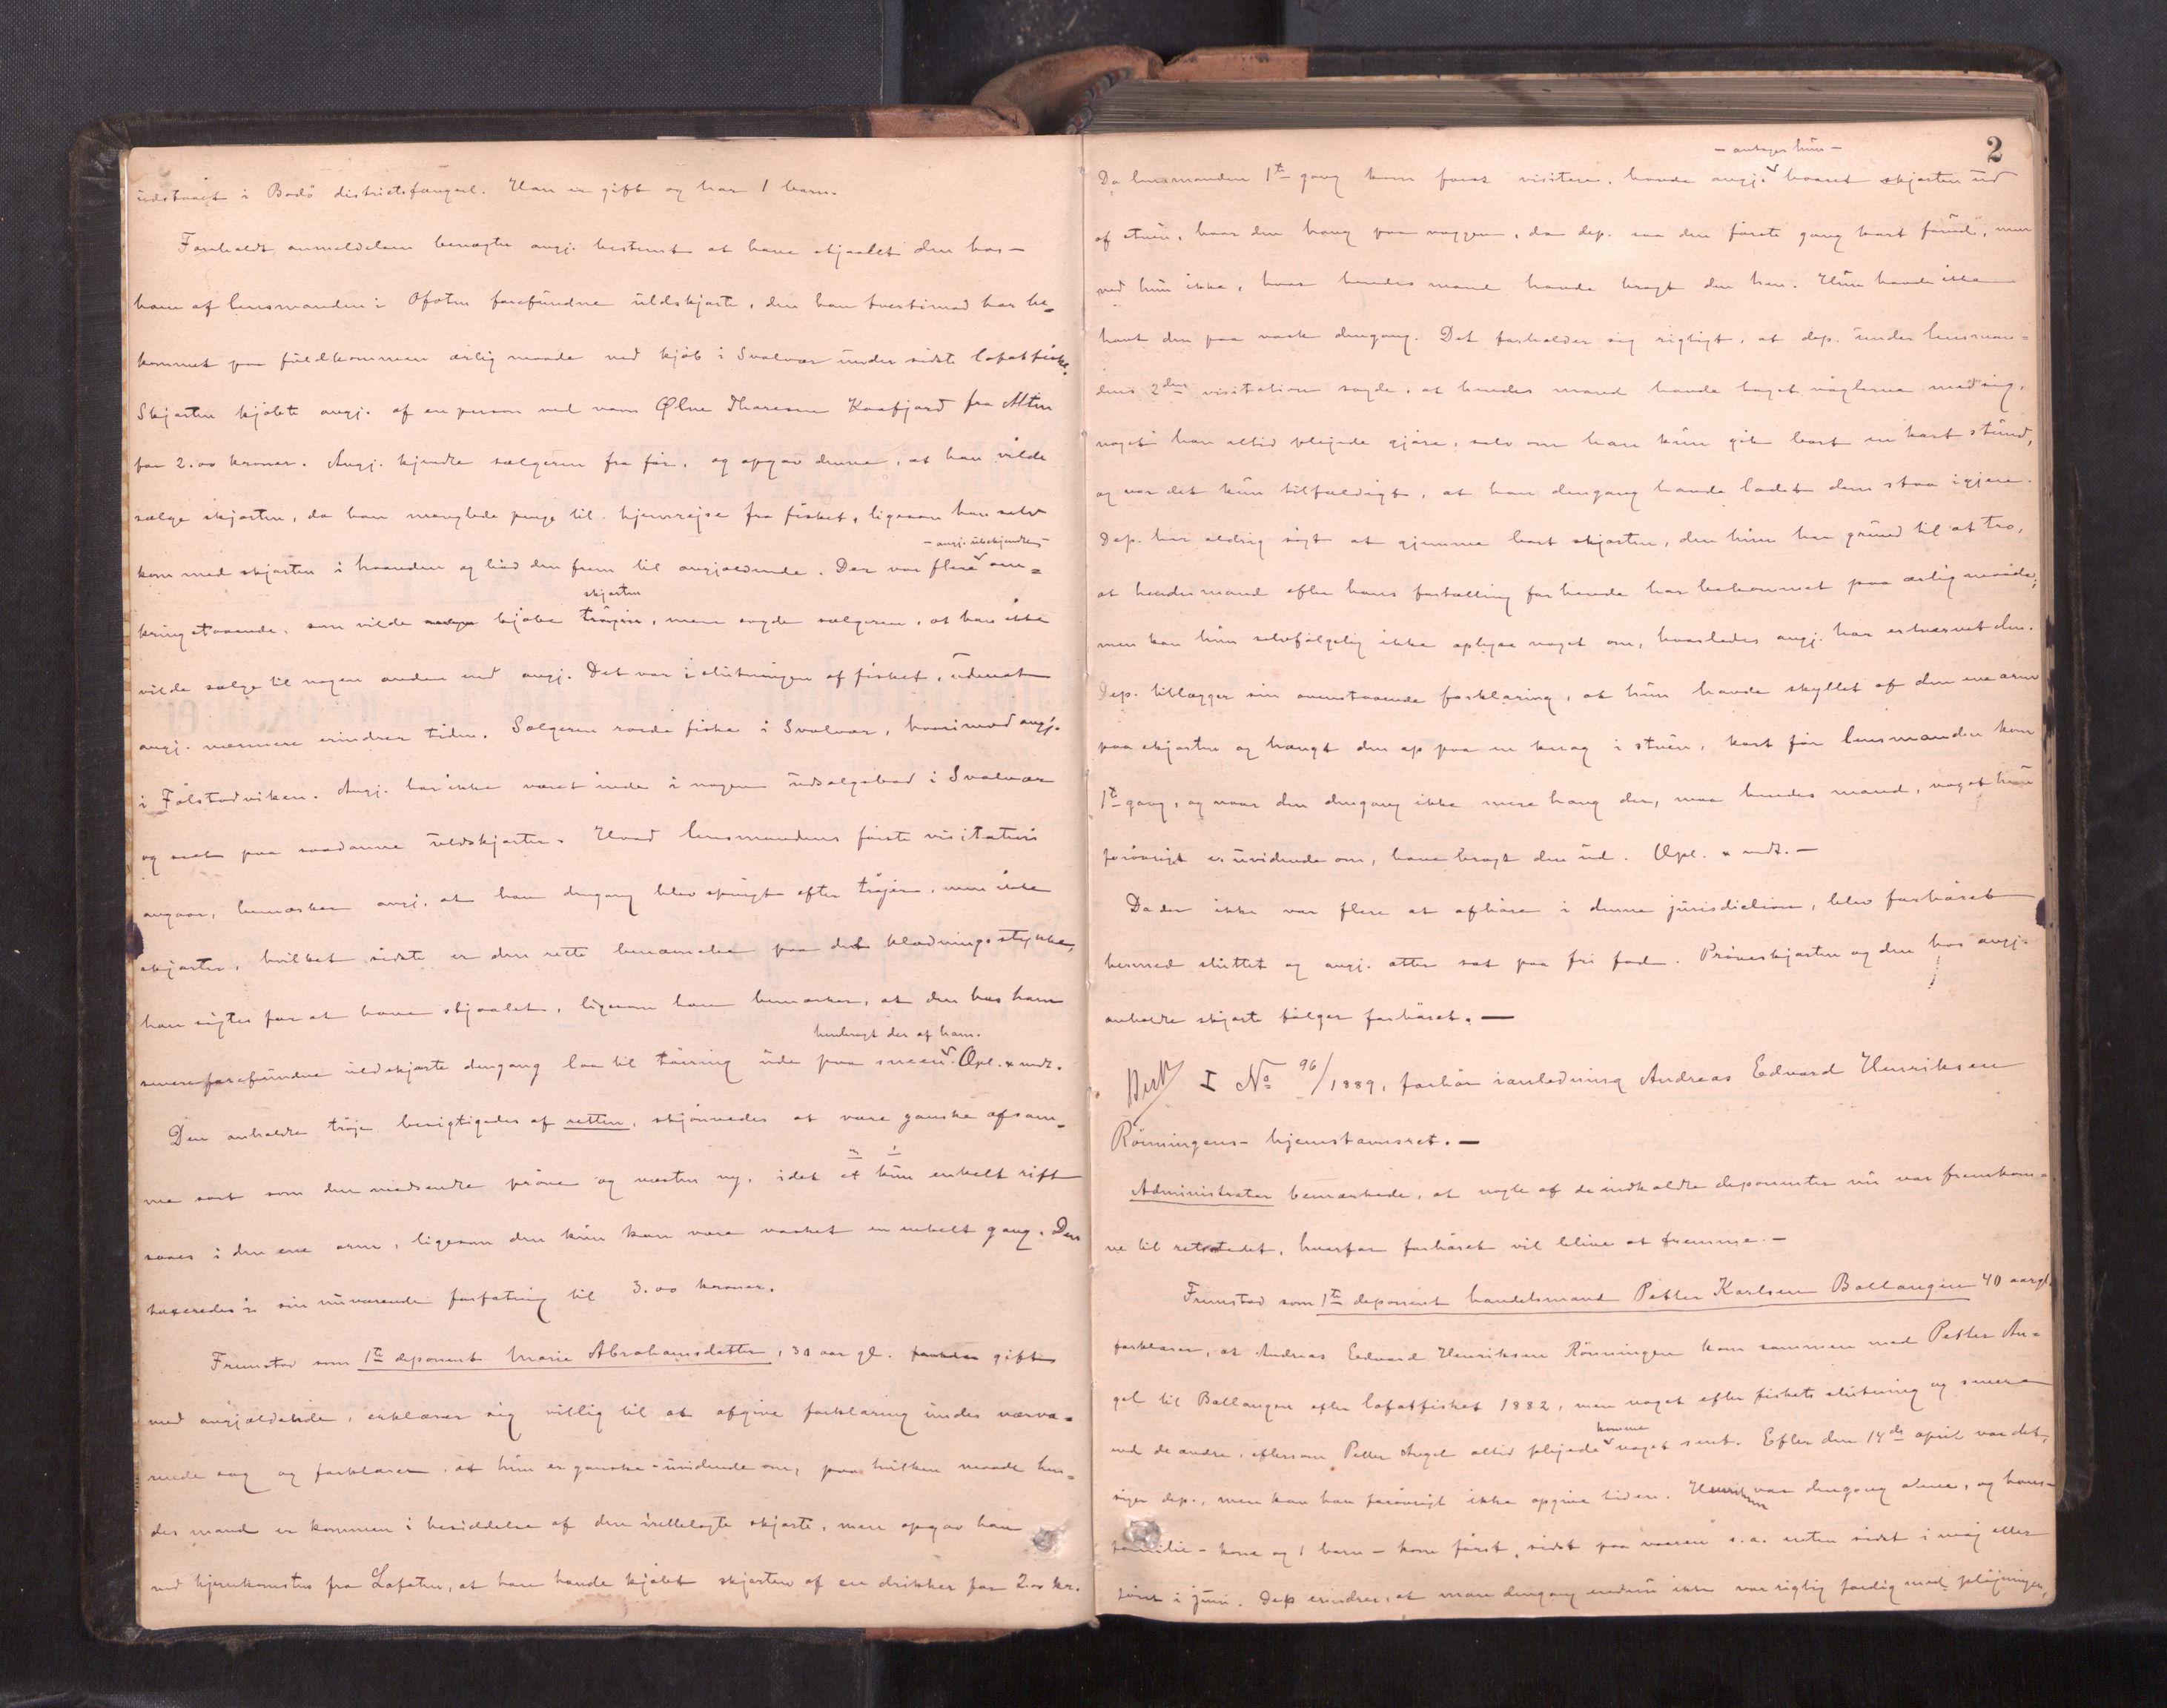 udstaaet i Bodö districtsfængsel. Han er gift og har 1 barn.
Foreholdt anmeldelsen benægter angj. bestemt at have stjaalet den hos
ham af lensmanden i Ofoten forefundne uldskjorte, den han tvertimod har be-
kommet paa fuldkommen ærlig maade ved kjöb i Svolvær under sidste lofotfiske.
Skjorten kjöbte angj. af en person ved navn Ølne Thoresen Kaafjord fra Alten
for 2.00 kroner. Angj. kjendte sælgeren fra för, og opgav denne, at han vilde
sælge skjorten, da han manglede penge til hjemrejse fra fisket, ligesom han selv
- angj. ubekjendte -
kom med skjorten i haanden og böd den frem til angjældende. Der var flere om-
skjorten
kringstaaende, som vilde kjöbe tröjen, men sagde sælgeren, at han ikke
vilde sælge til nogen anden end angj. Det var i slutningen af fisket, udenat
angj. nærmere erindrer tiden. Sælgeren roede fiske i Svolvær, hvorimod angj.
i Fölstadviken. Angj. har ikke været inde i nogen udsalgsbod i Svolvær
og seet paa saadanne uldskjorter. Hvad lensmandens förste visitation
angaar, bemærker angj. at han dengang blev spurgt efter tröjer, men ikke
skjorter, hvilket sidste er den rette benævnelse paa det klædningsstykke,
han sigtes for at have stjaalet, ligesom han bemærker, at den hos ham
henbragt der af ham.
senere forefundne uldskjorte dengang laa til törring ude paa sneen. Opl. & vedt.
Den anholdte tröje besigtigedes af retten, skjönnedes at være ganske af sam-
me sort som den medsendte pröve og næsten ny, idet et kun enkelt rift
saaes i den ene arm, ligesom den kun kan være vasket en enkelt gang. Den
taxeredes i sin nuværende forfatning til 3.00 kroner.
Fremstod som 1te deponent Marie Abrahamsdatter, 30 aar gl. gift
med angjældende, erklærer sig villig til at afgive forklaring under nærvæ-
rende sag og forklarer, at hun er ganske uvidende om, paa hvilken maade hen-
des mand er kommen i besiddelse af den irettelagte skjorte, men opgav han
ved hjemkomsten fra Lofoten, at han havde kjöbt skjorten af en drikker for 2.00 kr.
2
- antager hun -
Da lensmanden 1te gang kom forat visitere, havde angj. baaret skjorten ud
af stuen, hvor den hang paa væggen, da dep. saa den förste gang kort förud, men
ved hun ikke, hvor hendes mand havde bragt den hen. Hun havde ikke
havt den paa vask dengang. Det forholder sig rigtigt, at dep. under lensman-
dens 2den visitation sagde, at hendes mand havde taget nöglerne med sig,
noget han altid plejede gjöre, selv om han kun gik bort en kort stund,
og var det kun tilfældigt, at han dengang havde ladet dem staa igjen.
Dep. har aldrig sögt at gjemme bort skjorten, den hun har grund til at tro,
at hendes mand efter hans fortælling for hende har bekommet paa ærlig maade,
men kan hun selvfölgelig ikke oplyse noget om, hvorledes angj. har erhvervet den.
Dep. tillægger sin ovenstaaende forklaring, at hun havde skyllet af den ene arm
paa skjorten og hængt den op paa en knag i stuen, kort för lensmanden kom
1te gang, og naar den dengang ikke mere hang der, maa hendes mand, noget hun
forövrigt er uvidende om, have bragt den ud. Opl. & vedt. —
Da der ikke var flere at afhöre i denne jurisdiction, blev forhöret
hermed sluttet og angj. atter sat paa fri fod. Pröveskjorten og den hos angj.
anholdte skjorte fölger forhöret. —
I No 96/1889, forhör i anledning Andreas Edvard Henriksen
Rönningens hjemstavnsret. —
Administrator bemærkede, at nogle af de indkaldte deponenter nu var fremkom-
ne til retstedet, hvorfor forhöret vil blive at fremme. —
Fremstod som 1te deponent handelsmand Petter Karlsen Ballangen 40 aar gl.
forklarer, at Andreas Edvard Henriksen Rönningen kom sammen med Petter An-
gel til Ballangen efter lofotfisket 1882, men noget efter fiskets slutning og senere
komme
end de andre, eftersom Petter Angel altid plejede noget sent. Efter den 14de april var det,
siger dep., men kan han forövrigt ikke opgive tiden. Henriksen var dengang alene, og hans
familie - kone og 1 barn - kom först sidst paa vaaren s.a. enten sidst i maj eller
först i juni. Dep. erindrer, at man dengang endnu ikke var rigtig færdig med plöjningen,